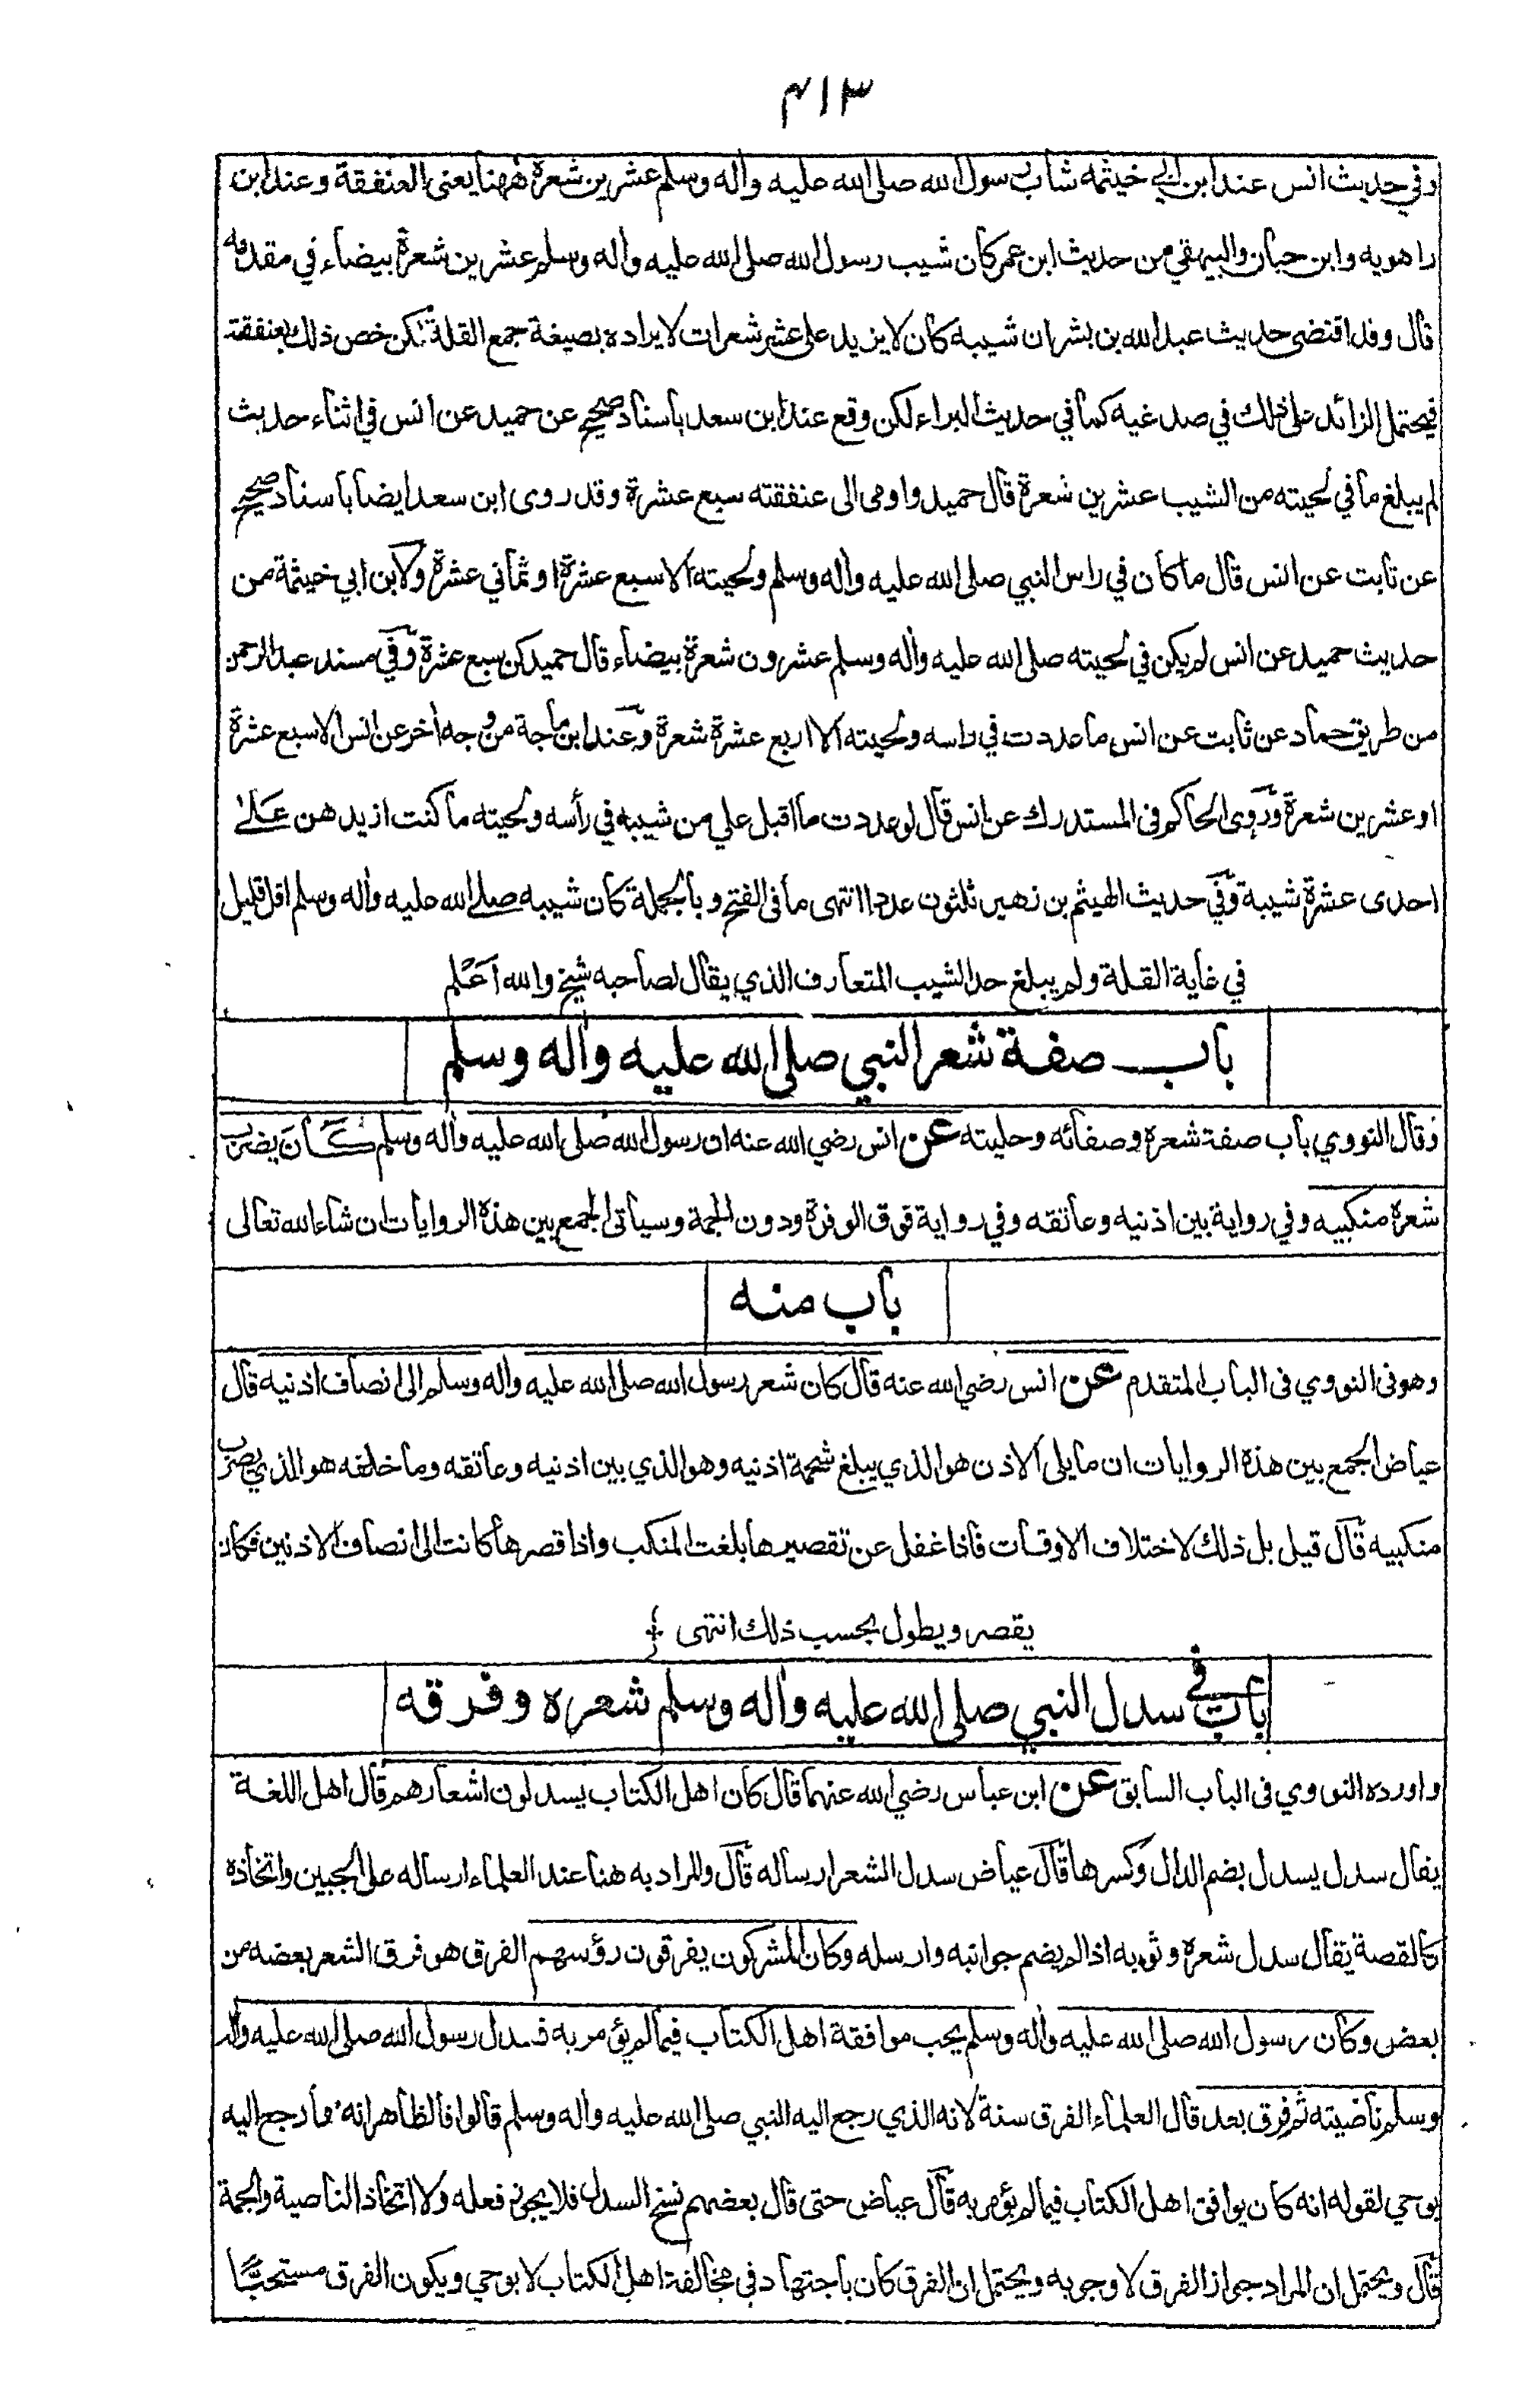 ٤١٣
وفي حديث انس عند ابن ابي خيثمه شاب رسول الله صلى الله عليه واله وسلم عشرين شعرة ههنا يعني العنفقة وعند ابن
راهويه وابن حبان والبيهقي من حديث ابن عمر كان شيب رسول الله صلى الله عليه واله وسلم عشرين شعرة بيضاء في مقدمه
قال وقد اقتضى حديث عبد الله بن بشر ان شيبه كان لا يزيد على عشر شعرات لايراده بصيغة جمع القلة لكن خص ذلك بعنفقته
فيحتمل الزائد على ذلك في صدغيه كما في حديث البراء لكن وقع عند ابن سعد باسناد صحيح عن حميد عن انس في اثناء حديث
لم يبلغ ما في لحيته من الشيب عشرين شعرة قال حميد واومى الى عنفقته سبع عشرة وقد روى ابن سعد ايضا باسناد صحيح
عن ثابت عن انس قال ما كان في راس النبي صلى الله عليه واله وسلم ولحيته الا سبع عشرة او ثماني عشرة ولابن ابي خيثمة من
حديث حميد عن انس لم يكن في لحيته صلى الله عليه واله وسلم عشرون شعرة بيضاء قال حميد كن سبع عشرة وفي مسند عبد الرحمن
من طريق حماد عن ثابت عن انس ما عددت في راسه ولحيته الا اربع عشرة شعرة وعند ابن ماجة من وجه اخر عن انس الا سبع عشرة
او عشرين شعرة وروى الحاكم فى المستدرك عن انس قال لو عددت ما اقبل علي من شيبه في رأسه ولحيته ما كنت ازيدهن على
احدى عشرة شيبة وفي حديث الهيثم بن زهير ثلثون عددا انتهى ما فى الفتح وبالجملة كان شيبه صلى الله عليه واله وسلم اقل قليل
في غاية القلة ولم يبلغ حد الشيب المتعارف الذي يقال لصاحبه شيخ والله اعلم
باب صفة شعر النبي صلى الله عليه واله وسلم
وقال النووي باب صفة شعره وصفاته وحليته عن انس رضي الله عنه ان رسول الله صلى الله عليه واله وسلم كان يضرب
شعره منكبيه وفي رواية بين اذنيه وعاتقه وفي رواية فوق الوفرة ودون الجمة وسيأتى الجمع بين هذه الروايات ان شاء الله تعالى
باب منه
وهو فى النووي فى الباب المتقدم عن انس رضي الله عنه قال كان شعر رسول الله صلى الله عليه واله وسلم الى انصاف اذنيه قال
عياض الجمع بين هذه الروايات ان ما يلى الاذن هو الذي يبلغ شحمة اذنيه وهو الذي بين اذنيه وعاتقه وما خلفه هو الذي يضرب
منكبيه قال قيل بل ذلك لاختلاف الاوقات فاذا غفل عن تقصيرها بلغت المنكب واذا قصرها كانت الى انصاف الاذنين فكان
يقصر ويطول بحسب ذلك انتهى
باب في سدل النبي صلى الله عليه واله وسلم شعره وفرقه
واورده النووي فى الباب السابق عن ابن عباس رضي الله عنهما قال كان اهل الكتاب يسدلون اشعارهم قال اهل اللغة
يقال سدل يسدل بضم الدال وكسرها قال عياض سدل الشعر ارساله قال والمراد به هنا عند العلماء ارساله على الجبين واتخاذه
كالقصة يقال سدل شعره وثوبه اذا لم يضم جوانبه وارسله وكان المشركون يفرقون رؤسهم الفرق هو فرق الشعر بعضه من
بعض وكان رسول الله صلى الله عليه واله وسلم يحب موافقة اهل الكتاب فيما لم يؤمر به فسدل رسول الله صلى الله عليه واله
وسلم ناصيته ثم فرق بعد قال العلماء الفرق سنة لانه الذي رجع اليه النبي صلى الله عليه واله وسلم قالوا فالظاهر انه ما رجع اليه
بوحي لقوله انه كان يوافق اهل الكتاب فيما لم يؤمر به قال عياض حتى قال بعضهم نسخ السدل فلا يجوز فعله ولا اتخاذ الناصية والجمة
قال ويحتمل ان المراد جواز الفرق لا وجوبه ويحتمل ان الفرق كان باجتهاد في مخالفة اهل الكتاب لا بوحي ويكون الفرق مستحبا